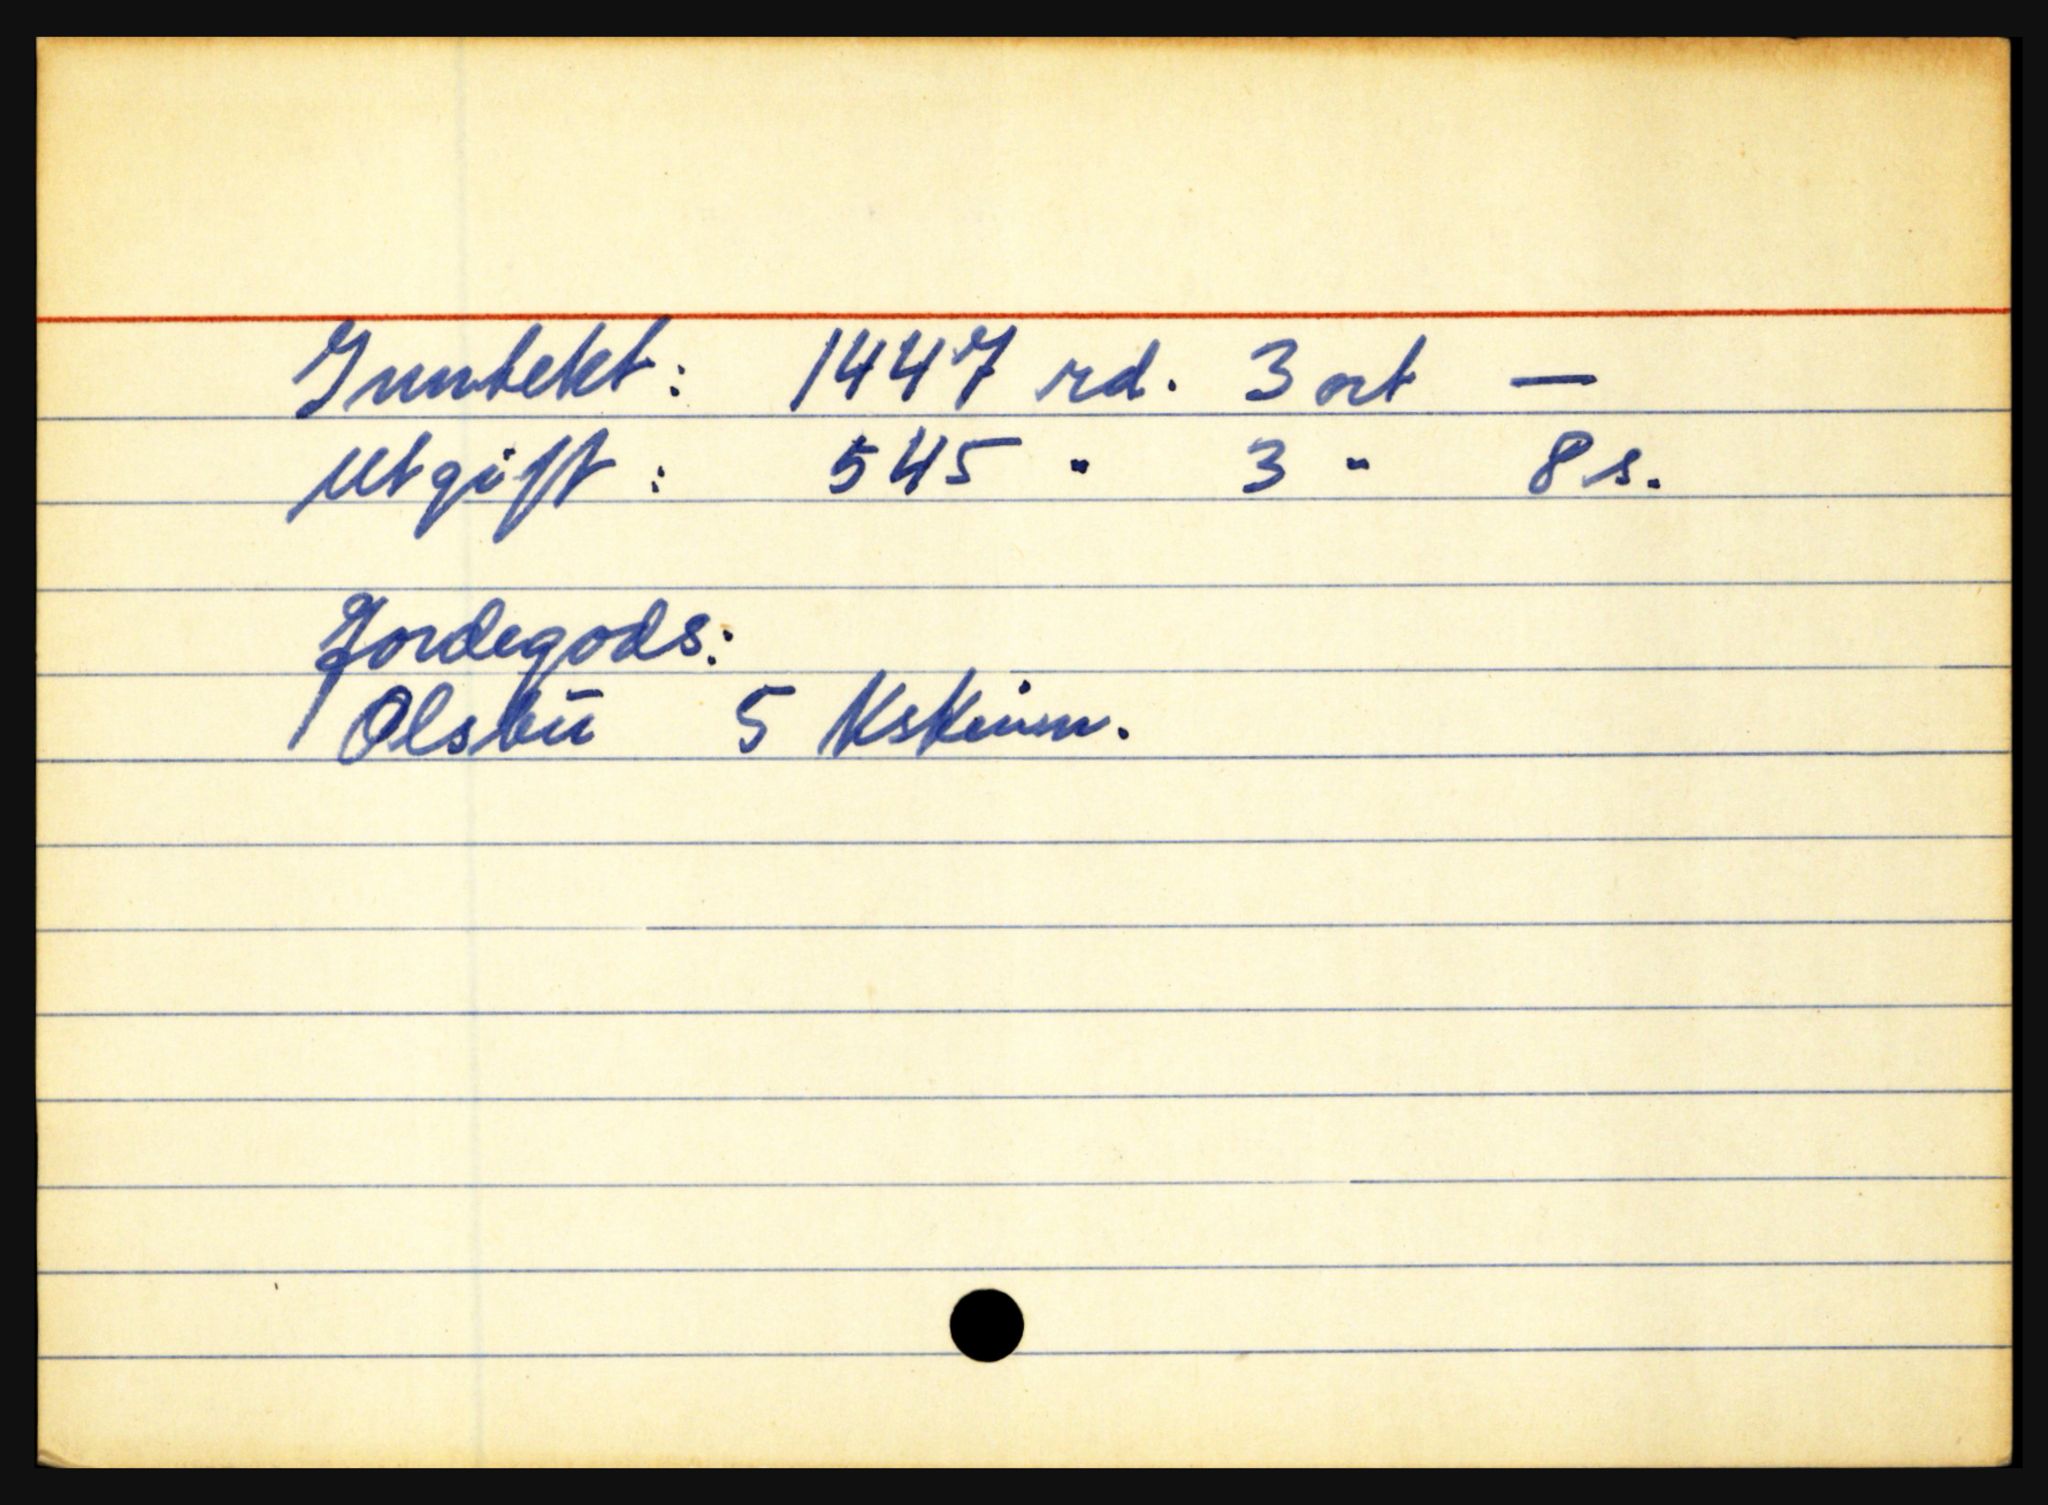 Inntekt: 1447 rd. 3 ort —
Utgift: 545 " 3 " 8 s.
Jordegods:
Olsbu 5 kskinn.